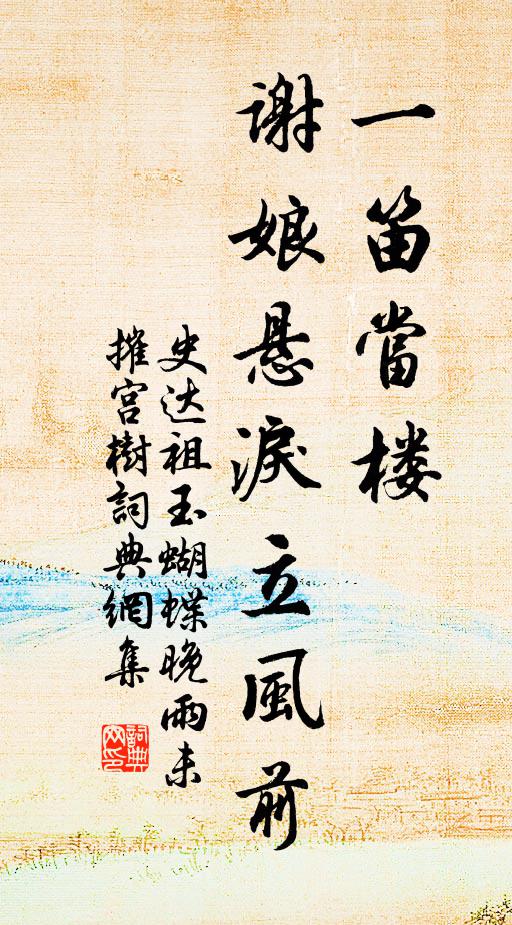 一笛當楼
謝娘悬淚立風前
史达祖玉蝴蝶晚雨未
摧宫樹詞典網集
詞典網印